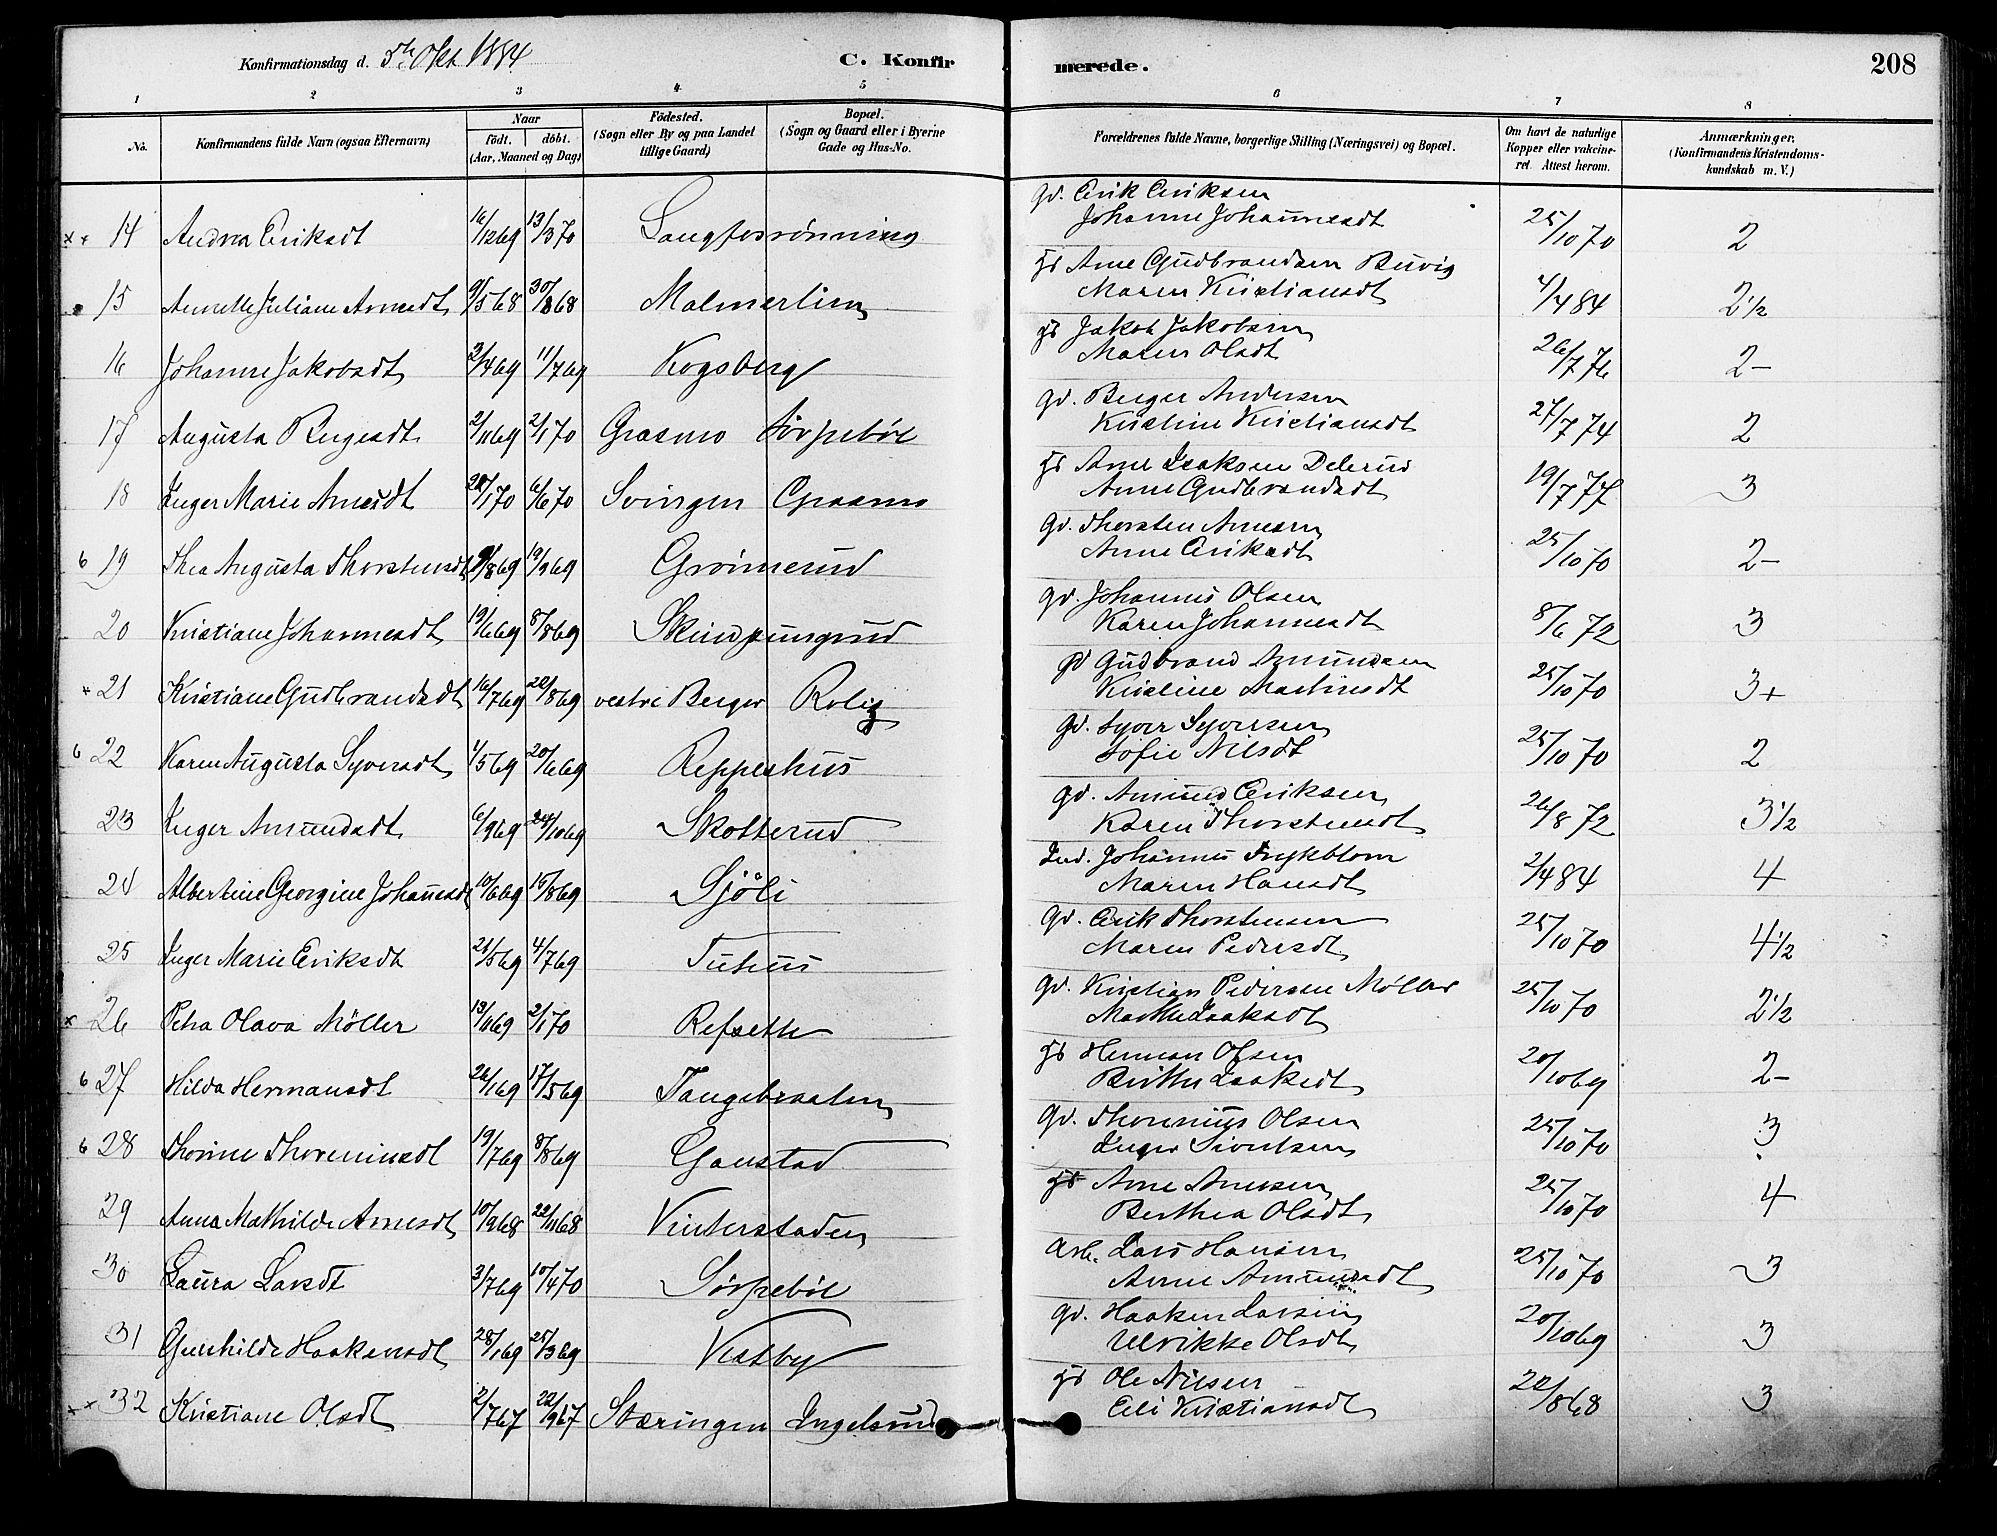 Konfirmationsdag d. 5te Okt. 1884
C. Konfirmerede.
208
1 2 3 4 5 6 7 8
No.
Konfirmandens fulde Navn (ogsaa Efternavn)
Naar
födt. döbt.
(Aar, Maaned og Dag)
Födested.
(Sogn eller By og paa Landet
tillige Gaard)
Bopæl.
(Sogn og Gaard eller i Byerne
Gade og Hus-No.
Forældrenes fulde Navne, borgerlige Stilling (Næringsvei) og Bopæl.
Om havt de naturlige
Kopper eller vakcine-
ret. Attest herom.
Anmærkninger.
(Konfirmandens Kristendoms-
kundskab m. V.)
x+ 14 Andrea Eriksdt 16/12 69 13/3 70 Langfosrønning Gd. Erik Eriksen
Johanne Johannesdt 25/10 70 2
15 Annette Juliane Arnesdt 9/5 68 30/8 68 Malmerlien Hs Arne Gudbrandsen Buvig
Maren Kristiansdt 4/4 84 2 1/2
16 Johanne Jakobsdt 2/4 69 11/7 69 Kogsberg Hs Jakob Jakobsen
Maren Olsdt 26/7 76 2-
17 Augusta Bergesdt 2/11 69 2/1 70 Grasmo Sörpeböl Gd. Berger Andersen
Kristine Kristiansdt 27/7 74 2
18 Inger Marie Arnesdt 28/1 70 6/6 70 Svingen Grasmo Hs Arne Isaksen Delerud
Anne Gudbrandsdt 19/7 77 3
6 19 Thea Augusta Thorstensdt 9/8 69 19/9 69 Grøimerud Gd. Thorsten Arnesen
Anne Eriksdt 25/10 70 2-
20 Kristiane Johannesdt 19/6 69 8/8 69 Skindpungrud Gd. Johannes Olsen
Karen Johannesdt 8/6 72 3
+ 21 Kristiane Gudbrandsdt 16/7 69 22/8 69 vestre Berger Rolig Gd Gudbrand Amundsen
Kristine Martinsdt 25/10 70 3+
6 22 Karen Augusta Syversdt 1/5 69 20/6 69 Reppeshus Gd. Syver Syversen
Sofie Nilsdt 25/10 70 2
23 Inger Amundsdt 6/9 69 24/10 69 Skotterud Gd. Amund Eriksen
Karen Thorstensdt 26/8 72 3 1/2
24 Albertine Georgine Johannesdt 10/6 69 15/8 69 Sjöli Ind. Johannes Frykblom
Maren Hansdt 2/4 84 4
25 Inger Marie Eriksdt 21/5 69 4/7 69 Tuhus Gd. Erik Thorstensen
Maren Pedersdt 25/10 70 4 1/2
x 26 Petra Olava Möller 13/11 69 2/1 70 Refsette Gd. Kristian Pedersen Möller
Marthe Isaksdt 25/10 70 2 1/2
6 27 Hilda Hermansdt 26/1 69 17/5 69 Tangebraaten Hs Herman Olsen
Berthe Isaksdt 20/10 69 2-
6 28 Thorine Thoreniusdt 19/7 69 8/8 69 Gaustad Gd. Thorenius Olsen
Inger Sivertsen 25/10 70 3
29 Anna Mathilde Arnesdt 10/9 68 22/11 68 Vinterstaden Hs Arne Arnesen
Berthea Olsdt 25/10 70 4
30 Laura Larsdt 3/7 69 10/4 70 Sörpeböl Arb. Lars Hansen
Anne Amundsdt 25/10 70 3
31 Gunhilde Haakensdt 28/1 69 25/3 69 Vestby Gd. Haaken Larsen
Ulrikke Olsdt 20/10 69 3
xx 32 Kristiane Olsdt 2/7 67 22/9 67 Stæringen Ingelsrud Hs Ole Nilsen
Eli Kristiansdt 22/8 68 3